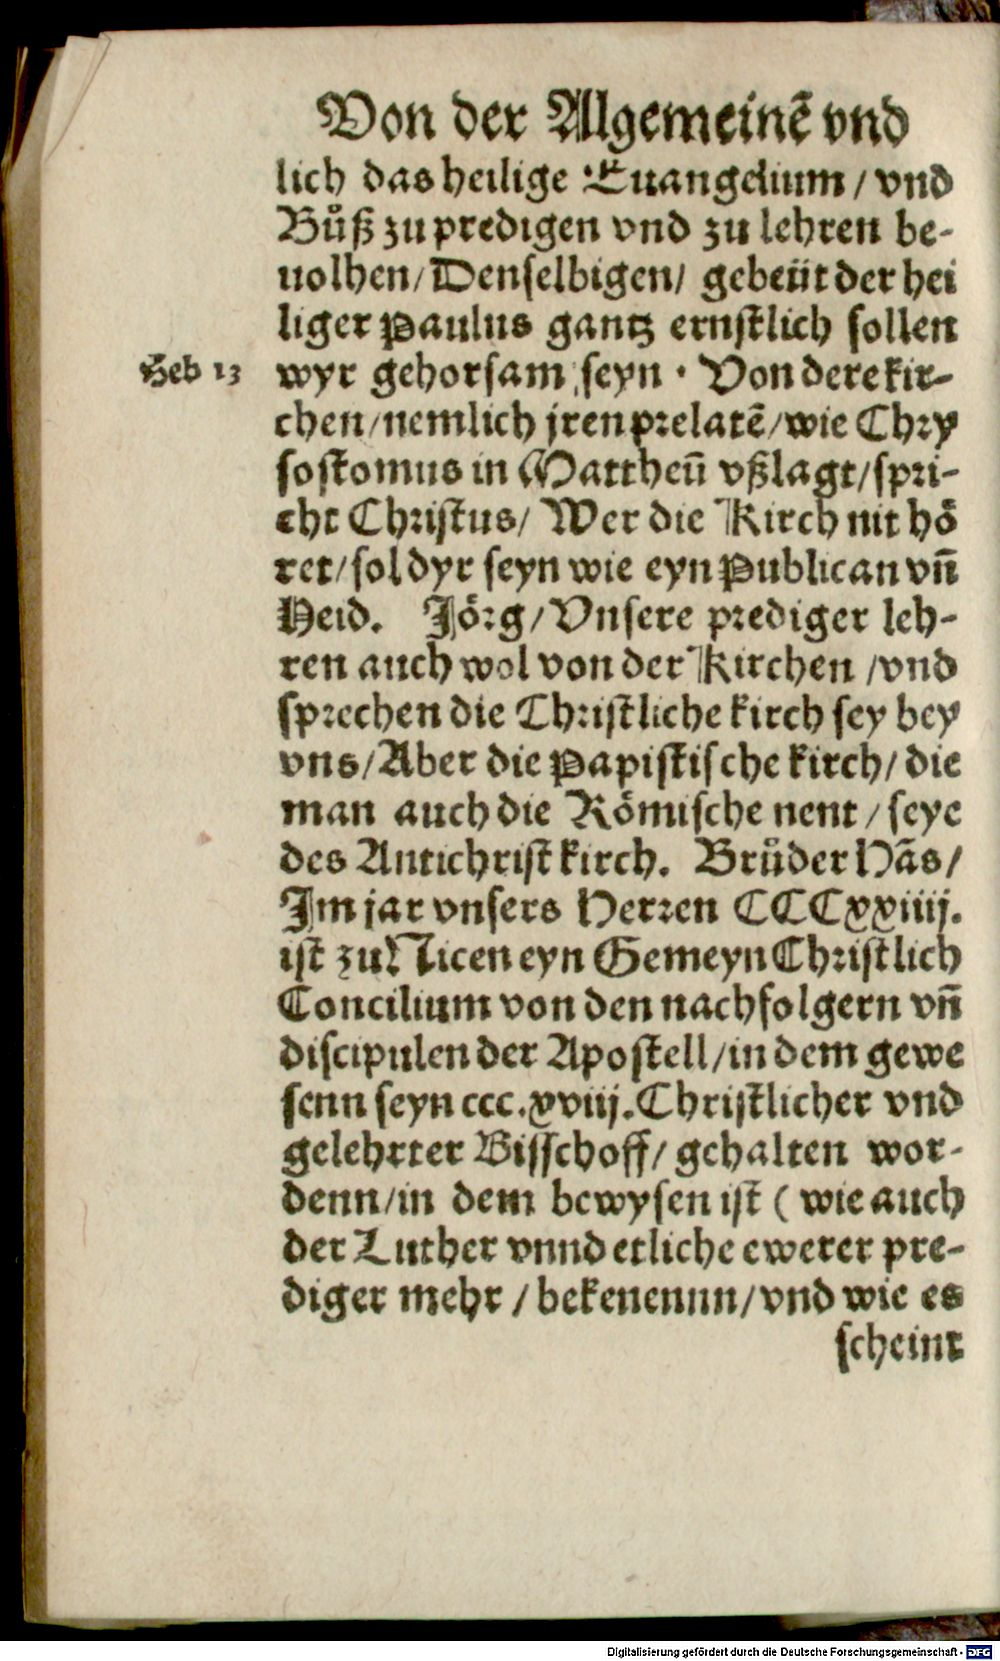 Von der Algemeinẽ vnd
lich das heilige Euangelium / vnd
Bůß zu predigen vnd zu lehren be-
uolhen / Denselbigen / gebeüt der hei
liger Paulus gantz ernstlich sollen
Heb 13
wyr gehorsam seyn · Von dere kir-
chen / nemlich jren prelatẽ / wie Chry
sostomus in Mattheũ vßlagt / spri-
cht Christus / Wer die Kirch nit hö
ret / sol dyr seyn wie eyn Publican vñ
Heid. Jörg / Vnsere prediger leh-
ren auch wol von der Kirchen / vnd
sprechen die Christliche kirch sey bey
vns / Aber die Papistische kirch / die
man auch die Römische nent / seye
des Antichrist kirch. Brůder Hãs /
Im jar vnsers Herren CCCxxiiij.
ist zu Nicen eyn Gemeyn Christlich
Concilium von den nachfolgern vñ
discipulen der Apostell / in dem gewe
senn seyn ccc.xviij. Christlicher vnd
gelehrter Bisschoff / gehalten wor-
denn / in dem bewysen ist ( wie auch
der Luther vnnd etliche ewerer pre-
diger mehr / bekenennn / vnd wie es
scheint
Digitalisierung gefördert durch die Deutsche Forschungsgemeinschaft - DFG